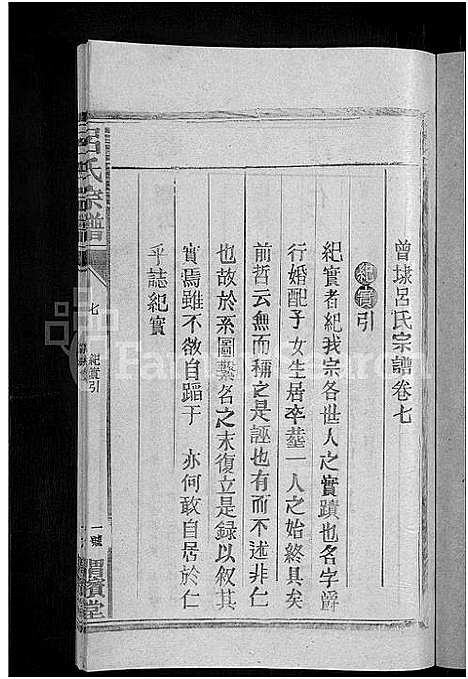 曾埭呂氏宗譜卷七
紀實引
紀實者紀我宗各世人之實蹟也名字爵
行婚配子女生居卒塟一人之始終具矣
前哲云無而稱之是誣也有而不述非仁
也故於系圖繫名之末復立是録以敘其
實焉雖不敢自蹈于 亦何敢自居於仁
乎誌紀實
呂氏宗譜
七
紀實引
一號
渭濱堂